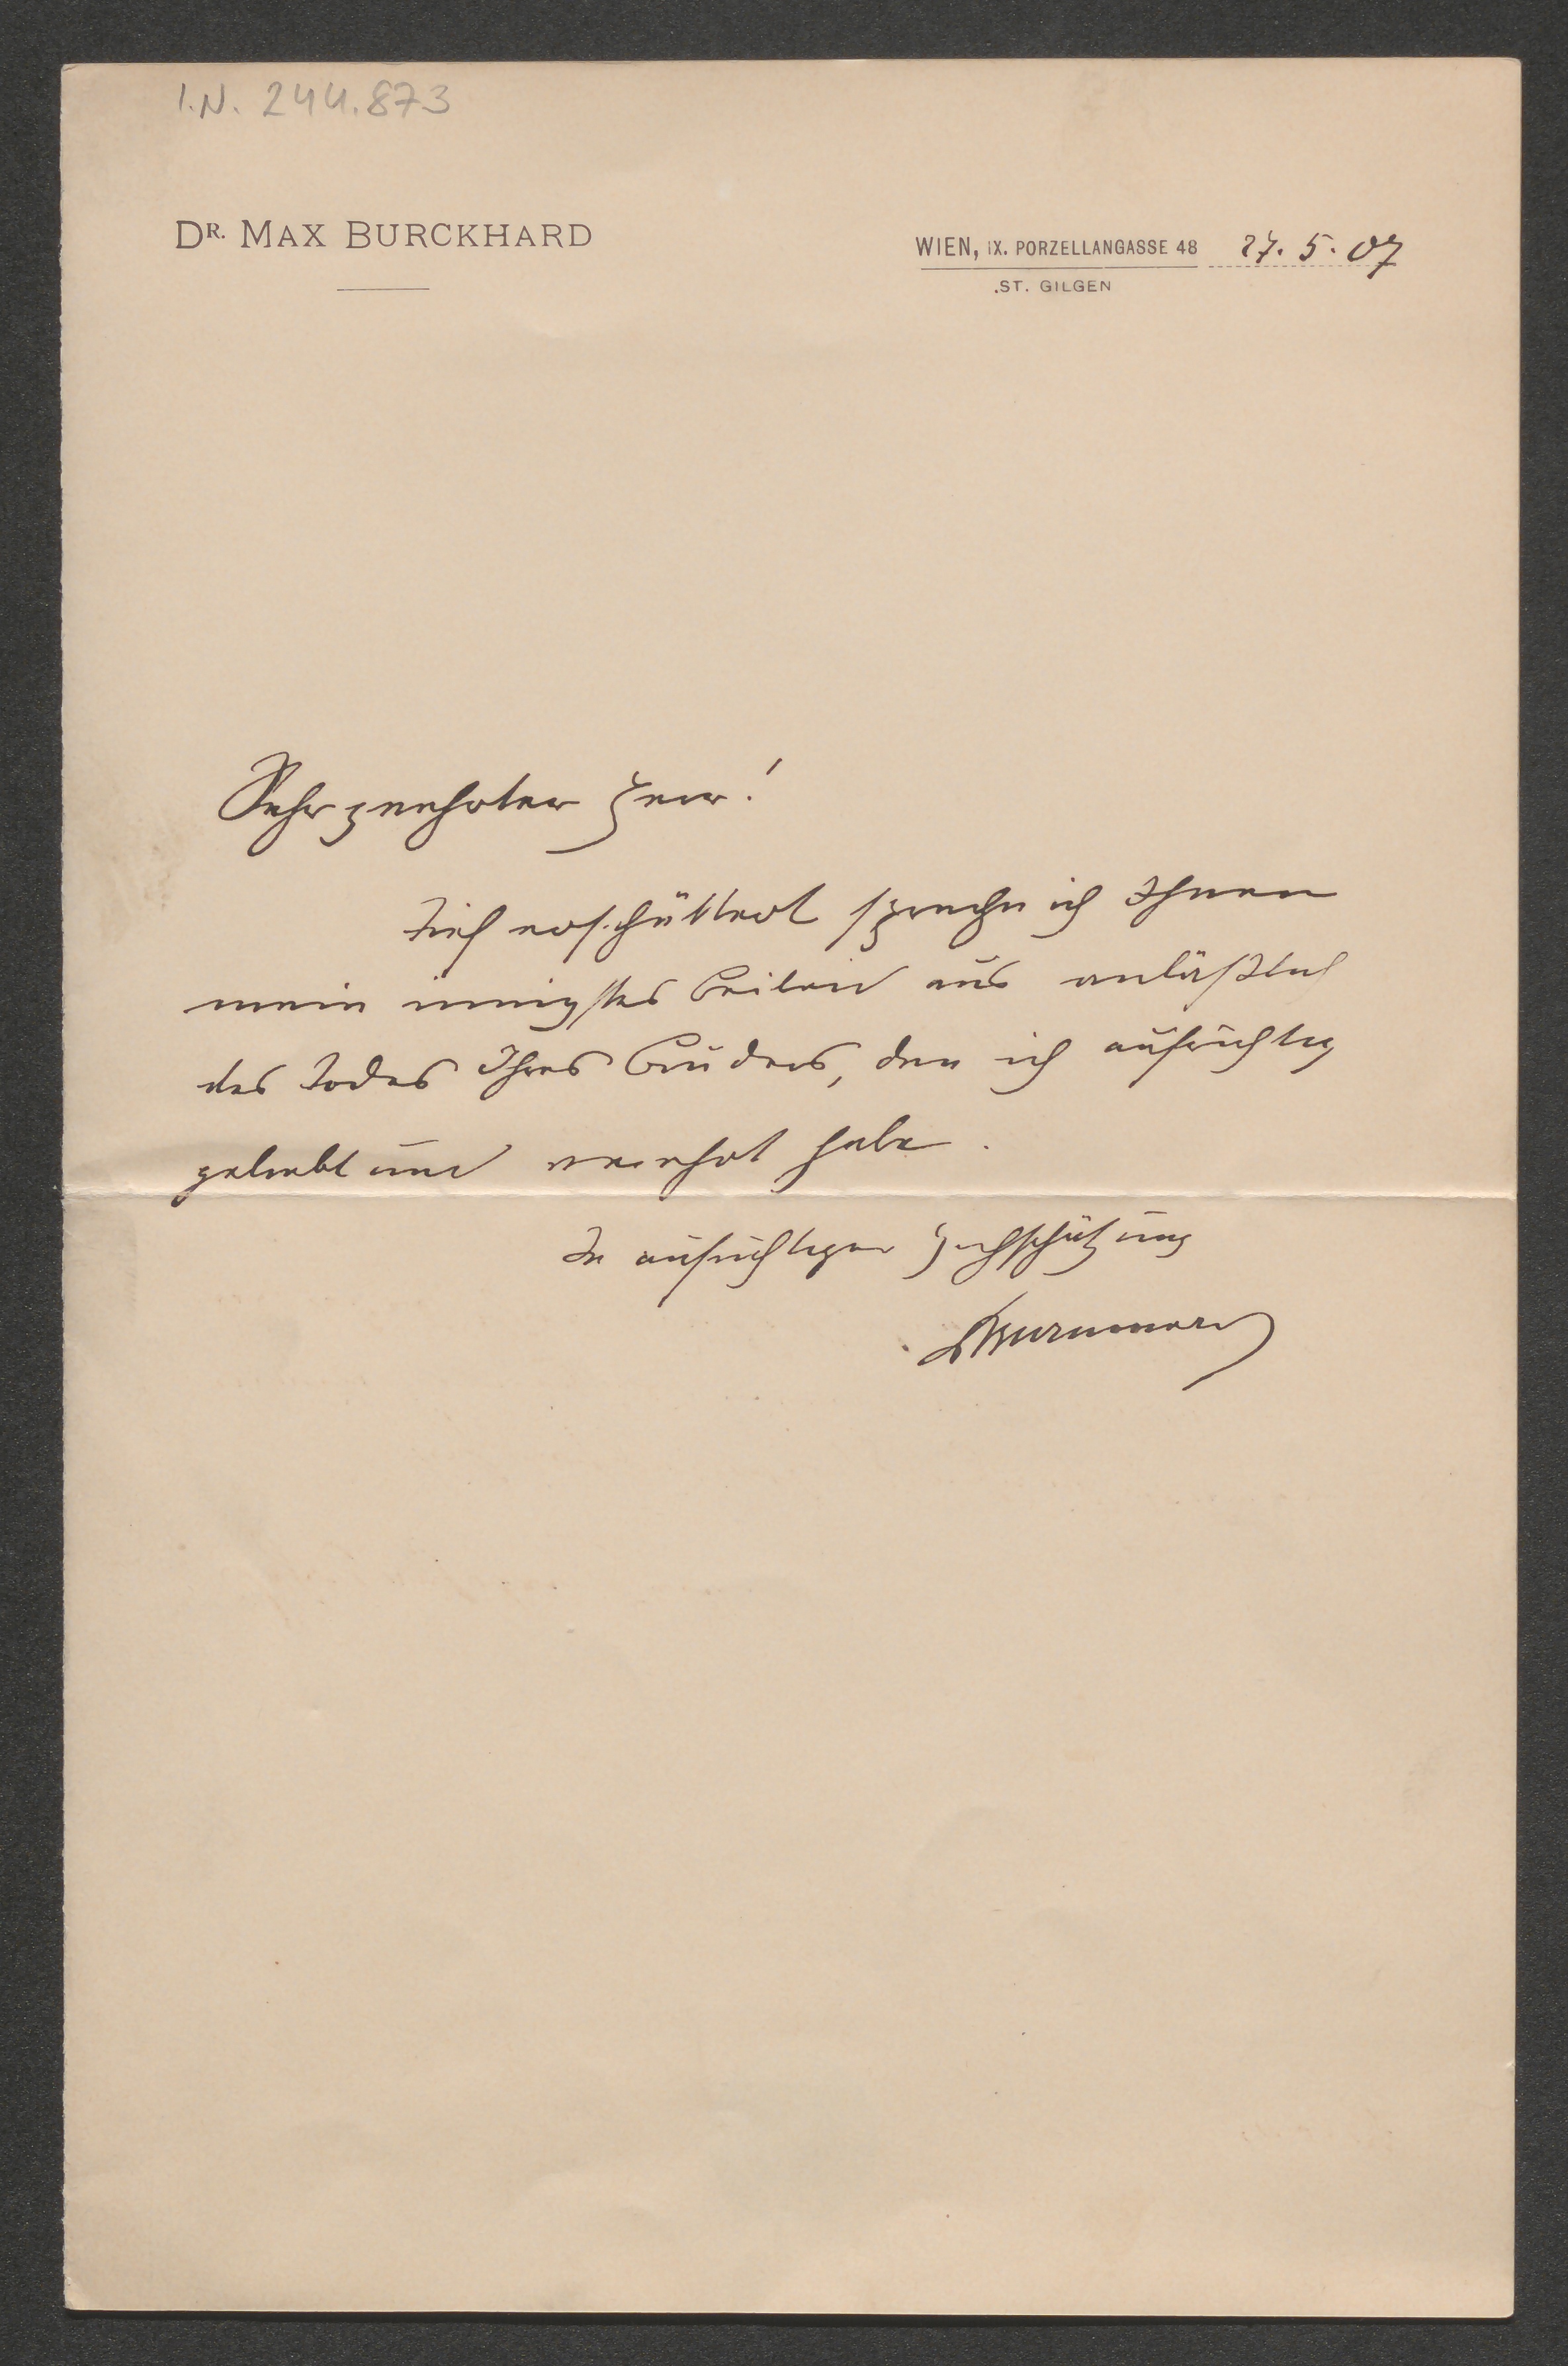 I.N. 244.873
DR. MAX BURCKHARD
WIEN, IX. PORZELLANGASSE 48 27. 5. 07
ST. GILGEN
Sehr geehrter Herr!
Tief erschüttert spreche ich Ihnen
mein innigstes Beileid aus anläßlich
des Todes Ihres Bruders, den ich aufrichtig
geliebt und verehrt habe.
In aufrichtiger Hochschätzung